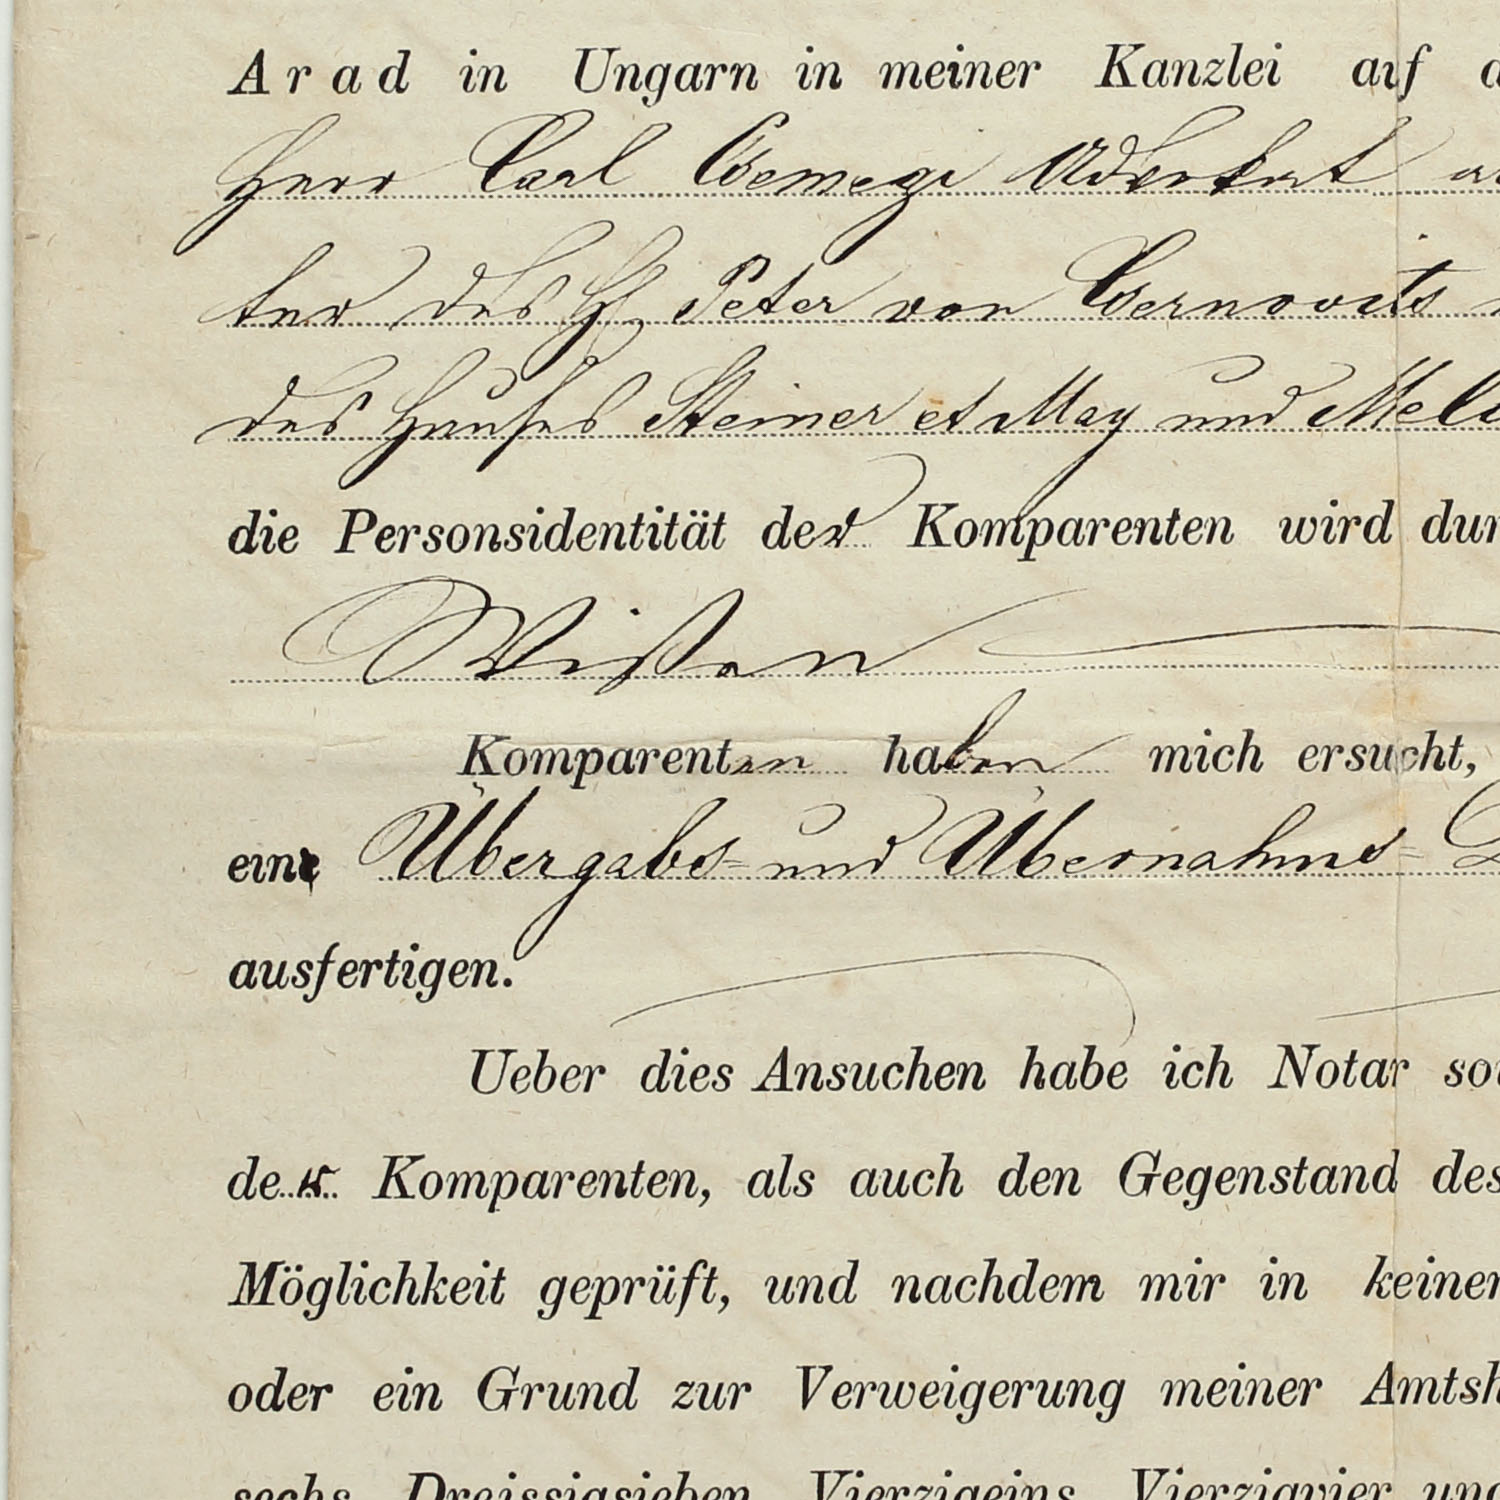 Arad in Ungarn in meiner Kanzlei auf
Herr Carl Csemegi Advokat
ter des H Peter von Csernovits
des Hauses Steiner et May und
die Personsidentität der Komparenten wird
Wißen
Komparenten haben mich ersucht,
eine Übergabs- und Übernahms-
ausfertigen.
Ueber dies Ansuchen habe ich Notar
der Komparenten, als auch den Gegenstand des
Möglichkeit geprüft, und nachdem mir in keiner
oder ein Grund zur Verweigerung meiner
sechs, Dreissigsieben, Vierzigeins, Vierzigvier und